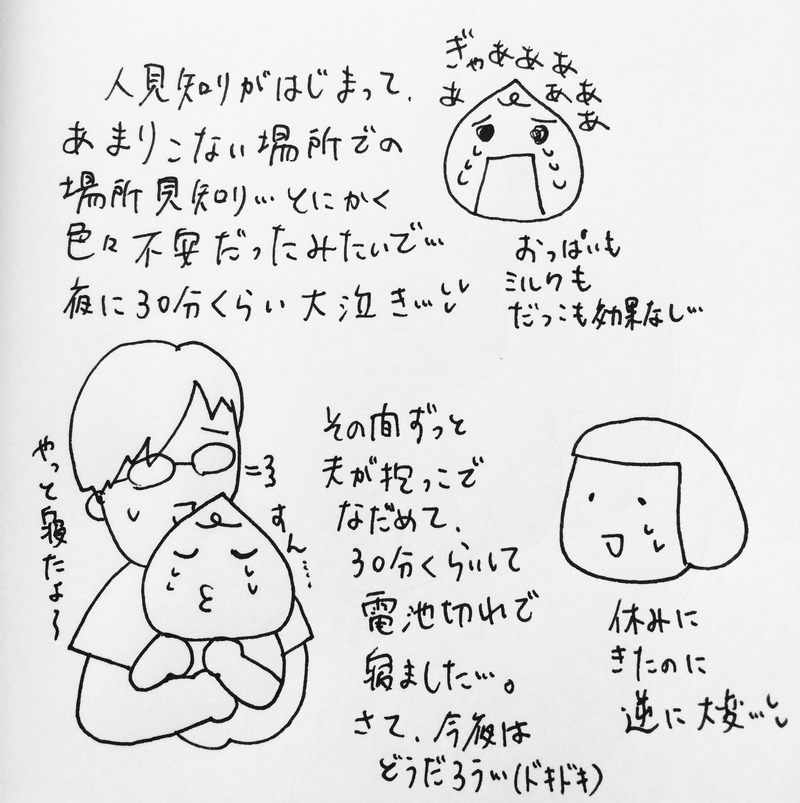 人見知りがはじまって、
あまりこない場所での
場所見知り…とにかく
色々不安だったみたいで…
夜に30分くらい大泣き…
ぎゃぁあああ
あ
ああ
あ
おっぱいも
ミルクも
だっこも効果なし…
やっと寝たよ〜
すん……
その間ずっと
夫が抱っこで
なだめて、
30分くらいして
電池切れで
寝ました…。
さて、今夜は
どうだろう…(ドキドキ)
休みに
きたのに
逆に大変…